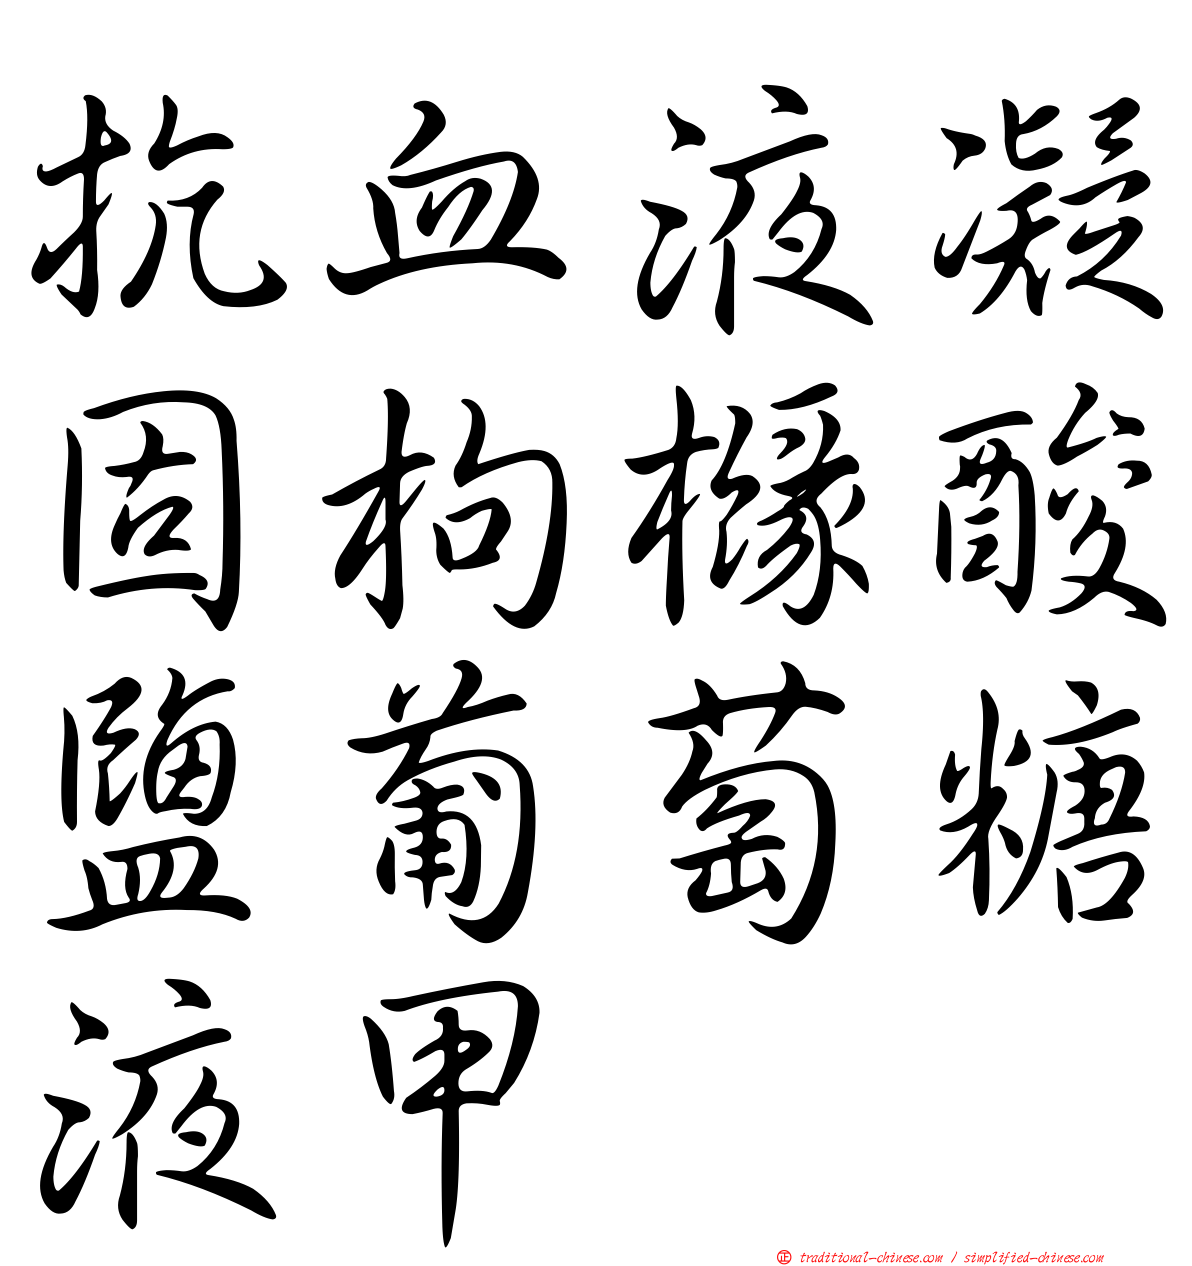 抗血液凝
固枸櫞酸
鹽葡萄糖
液甲
正 traditional-chinese.com / simplified-chinese.com